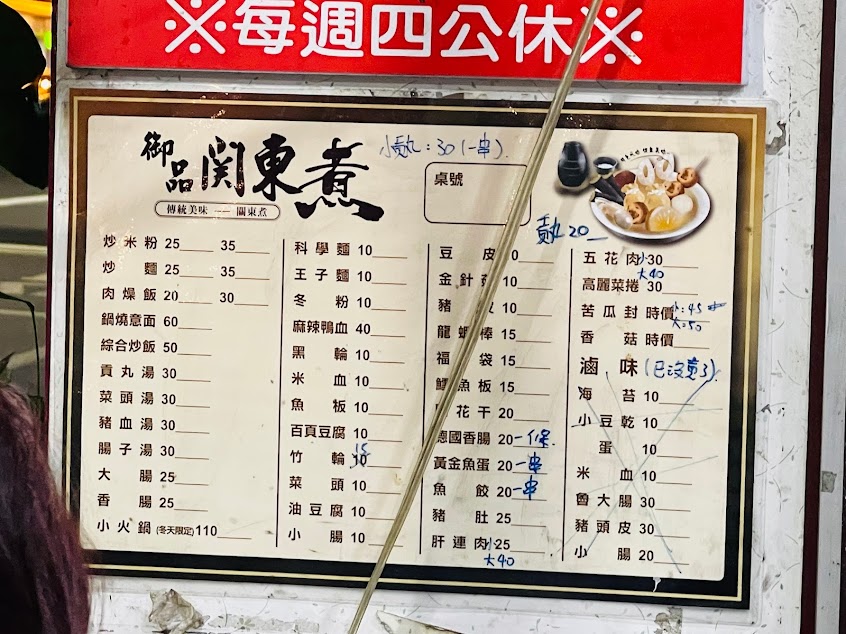 ※每週四公休※
御品関東煮
小貢丸：30（一串）
傳統美味 — 關東煮
桌號
貢丸 20
炒米粉 25 35
炒麵 25 35
肉燥飯 20 30
鍋燒意面 60
綜合炒飯 50
貢丸湯 30
菜頭湯 30
豬血湯 30
腸子湯 30
大腸 25
香腸 25
小火鍋(冬天限定)110
科學麵 10
王子麵 10
冬粉 10
麻辣鴨血 40
黑輪 10
米血 10
魚板 10
百頁豆腐 10
竹輪 15
菜頭 10
油豆腐 10
小腸 10
豆皮 0
金針 10
豬 10
龍蝦棒 15
福袋 15
鱈魚板 15
花干 20
德國香腸 20 一條
黃金魚蛋 20 一串
魚餃 20 一串
豬肚 25
肝連肉 小25
大40
五花肉 小30
大40
高麗菜捲 30
苦瓜封 時價 小：45
大：50
香菇 時價
滷味（已沒賣了）
海苔 10
小豆乾 10
蛋 10
米血 10
魯大腸 30
豬頭皮 30
小腸 20